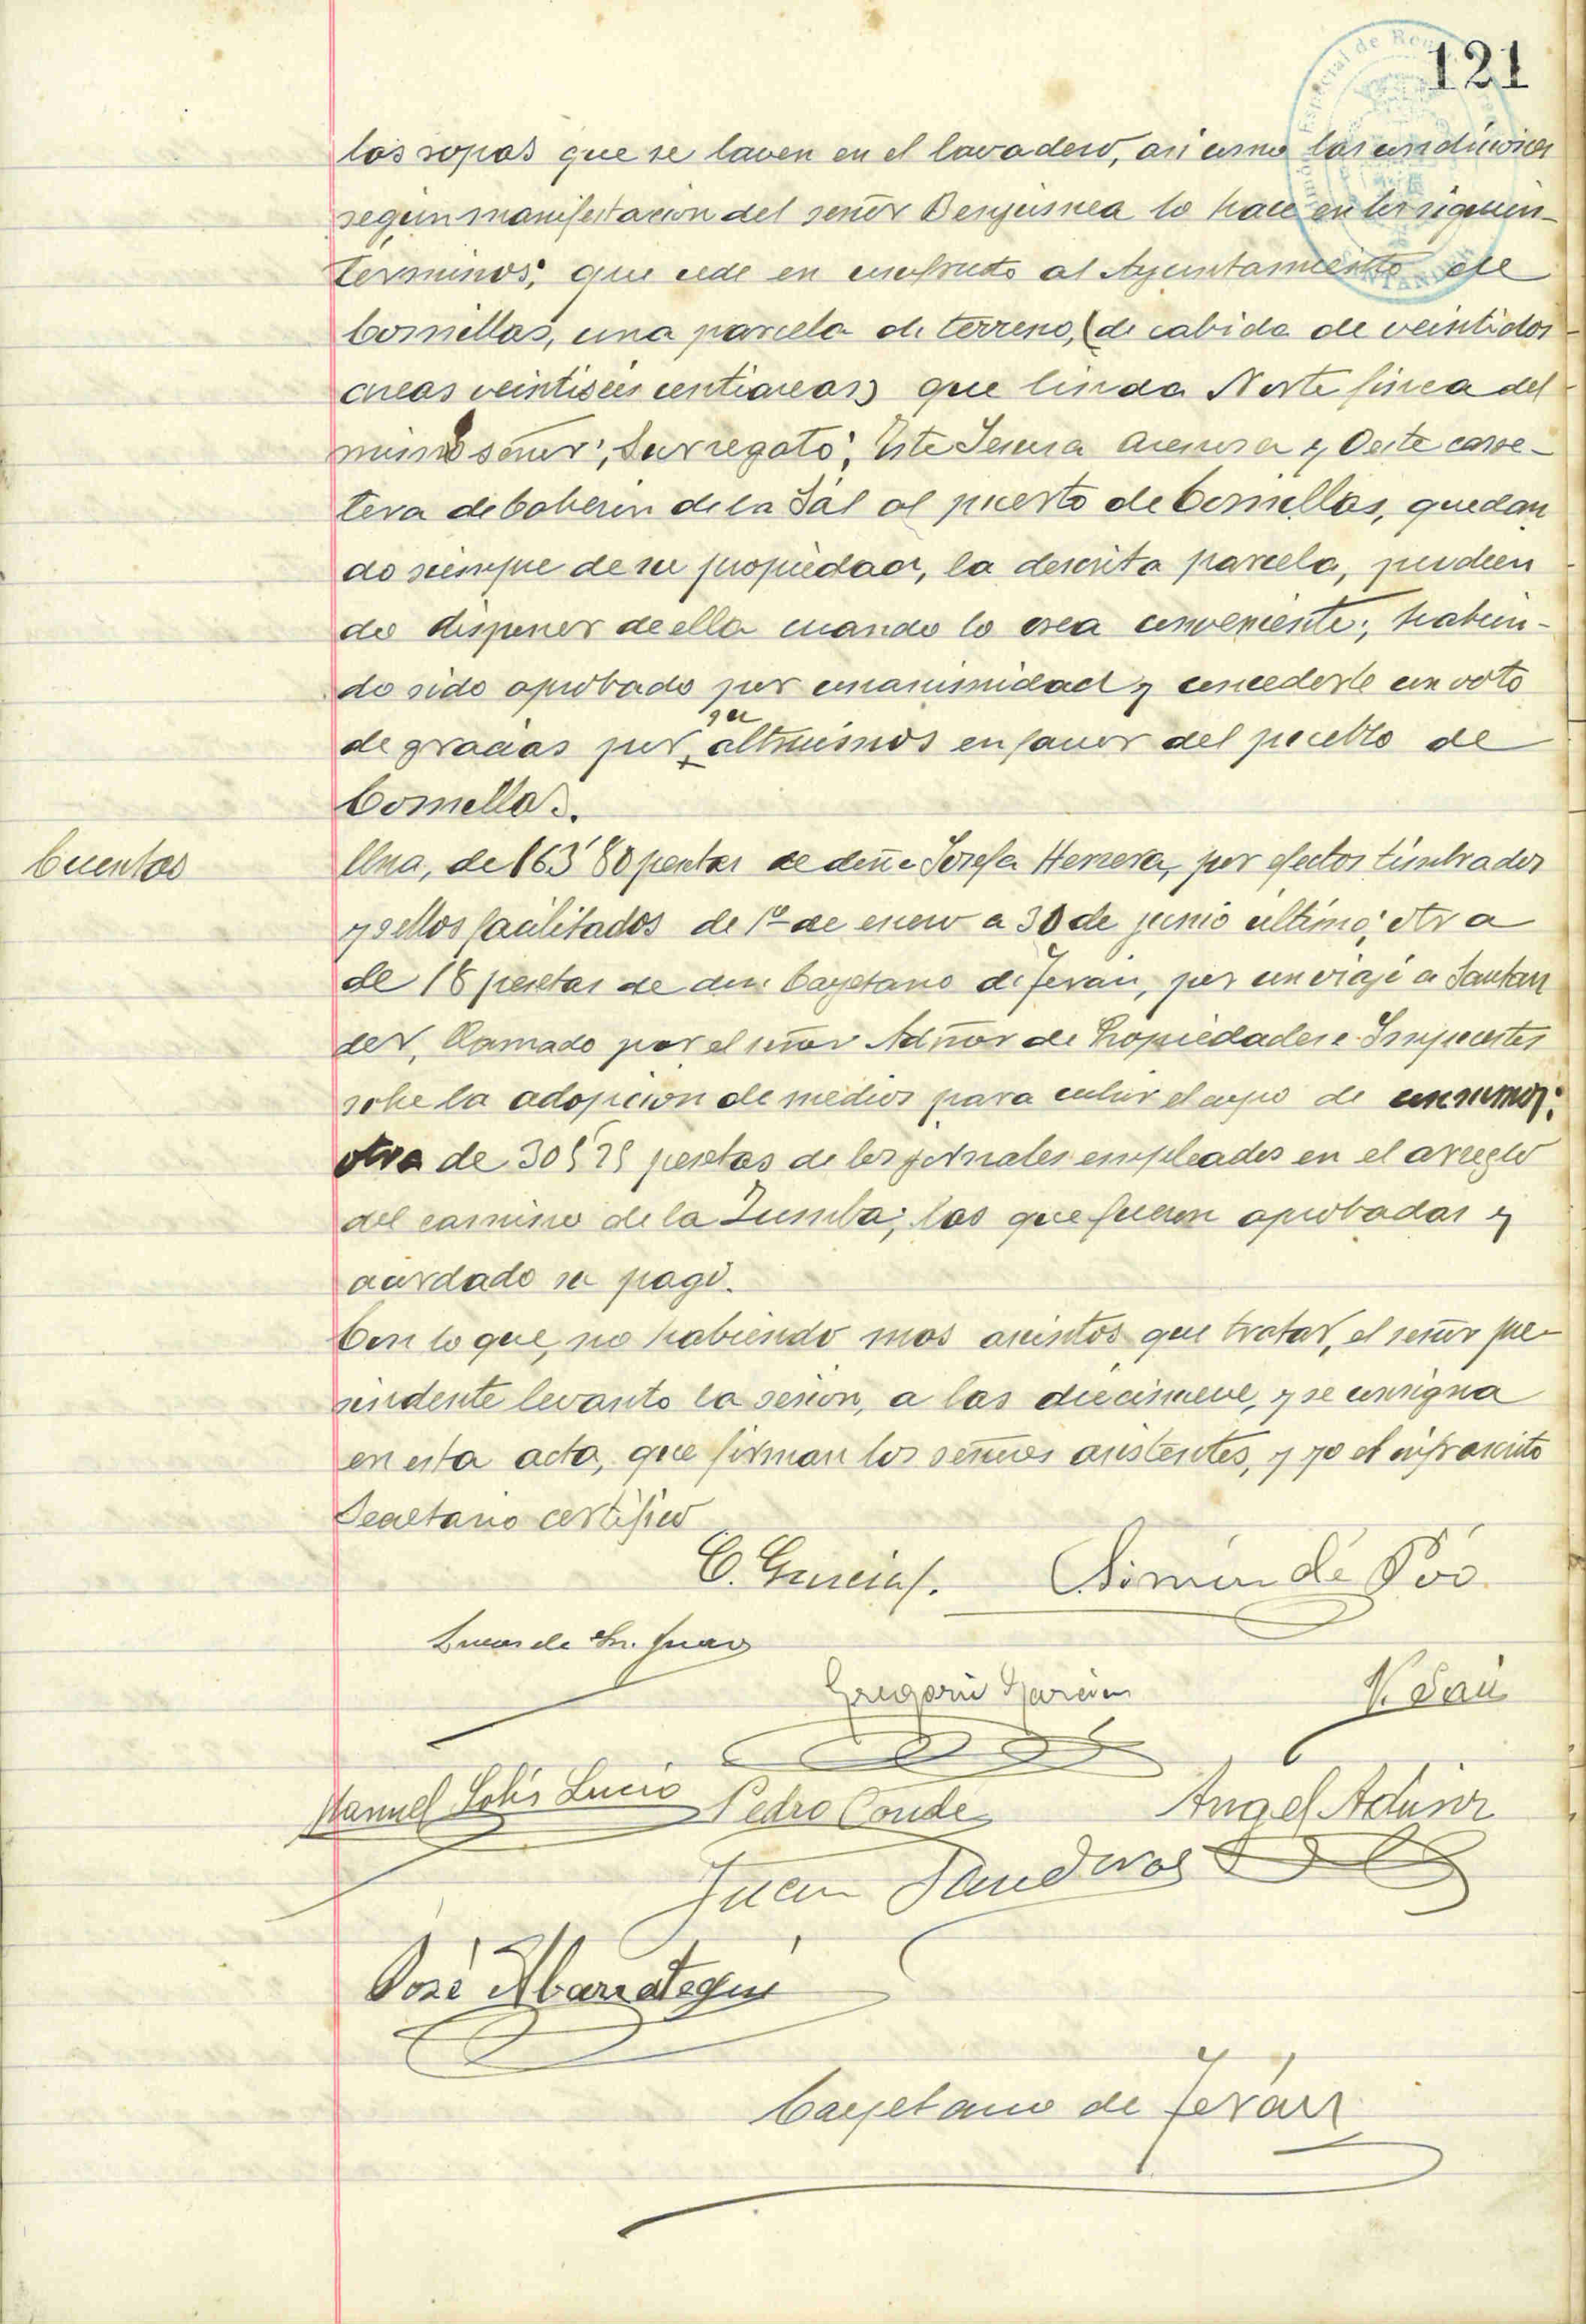 121
las ropas que se laven en el lavadero, asi como las condiciones
segun manifestacion del señor          lo hace en los siguien-
terminos; que cede en usufructo al Ayuntamiento de
Comillas, una parcela de terreno, (de cabida de veintidos
areas veintiseis centiareas) que linda Norte finca del
mismo señor; Sur regato; Este Teresa          y Oeste carre-
tera de Cabezon de la Sal al puerto de Comillas, quedan
do siempre de su propiedad, la descrita parcela, pudien
do disponer de ella cuando lo crea conveniente; habien-
do sido aprobado por unanimidad y concederle un voto
de gracias por sus altruismos en favor del pueblo de
Comillas.
Cuentas
Una, de 163'80 pesetas de doña Josefa Herrera, por efectos timbrados
y sellos facilitados de 1º de enero a 30 de junio ultimo; otra
de 18 pesetas de don Cayetano de Terán, por un viaje a Santan
der, llamado por el señor Admor de Propiedades e Impuestos
sobre la adopcion de medios para cubrir el cupo de consumos;
otra de          pesetas de los jornales empleados en el arreglo
del camino de la Zumba; las que fueron aprobadas y
acordado su pago.
Con lo que, no habiendo mas asuntos que tratar, el señor pre-
sidente levanto la sesion, a las diecinueve, y se consigna
en esta acta, que firman los señores asistentes, y yo el infrascrito
Secretario certifico
C. Garcia          Simón de Poó
Lucas de Sn. Juan
Gregorio Garcia
Manuel Solís Lucio Pedro Conde Angel
Juan
José Albarrategui
Cayetano de Terán